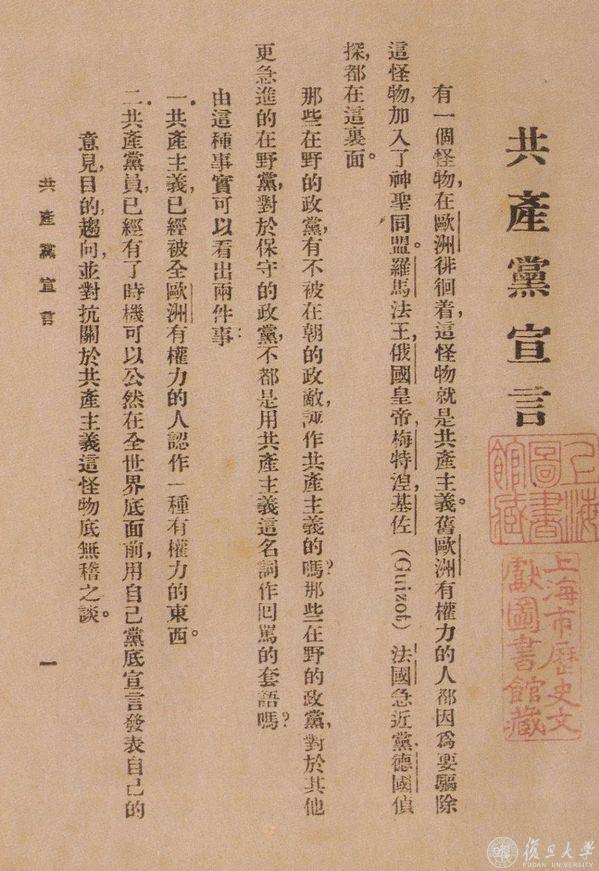 共產黨宣言
有一個怪物，在歐洲徘徊着，這怪物就是共產主義。舊歐洲有權力的人都因爲要驅除
這怪物，加入了神聖同盟。羅馬法王，俄國皇帝，梅特湼，基佐（Guizot）法國急近黨，德國偵
探，都在這裏面。
那些在野的政黨，有不被在朝的政敵，誣作共產主義的嗎？那些在野的政黨，對於其他
更急進的在野黨，對於保守的政黨，不都是用共產主義這名詞作回罵的套語嗎？
由這種事實可以看出兩件事：
一．共產主義，已經被全歐洲有權力的人認作一種有權力的東西。
二．共產黨員，已經有了時機可以公然在全世界底面前，用自己黨底宣言發表自己的
意見，目的，趨向，並對抗關於共產主義這怪物底無稽之談。
共產黨宣言
一
上海
圖書
館藏
上海市歷史文
獻圖書館藏
復旦大學
FUDAN UNIVERSITY